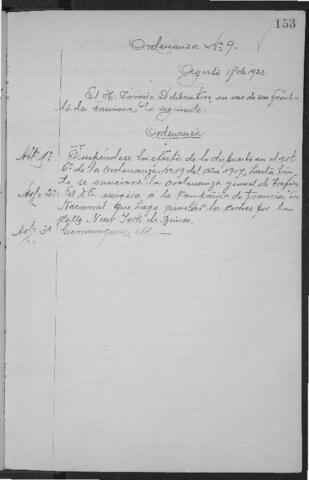 153
Ordenanza No. 9.
Agosto 17 de 1922
El H. Concejo Deliberativo, en uso de sus facul-
tades sanciona la siguiente:
Ordenanza
Art. 1º Suspéndese los efectos de lo dispuesto en el art.
6º de la Ordenanza Nº 19 del año 1917, hasta tan
to se sancione la ordenanza general de tráfico
Art. 2º El D.E. exigirá a la Compañía de Tranvías
Nacional que haga circular los coches por la
calle New York de
Art. 3º Comuníquese, etc.—